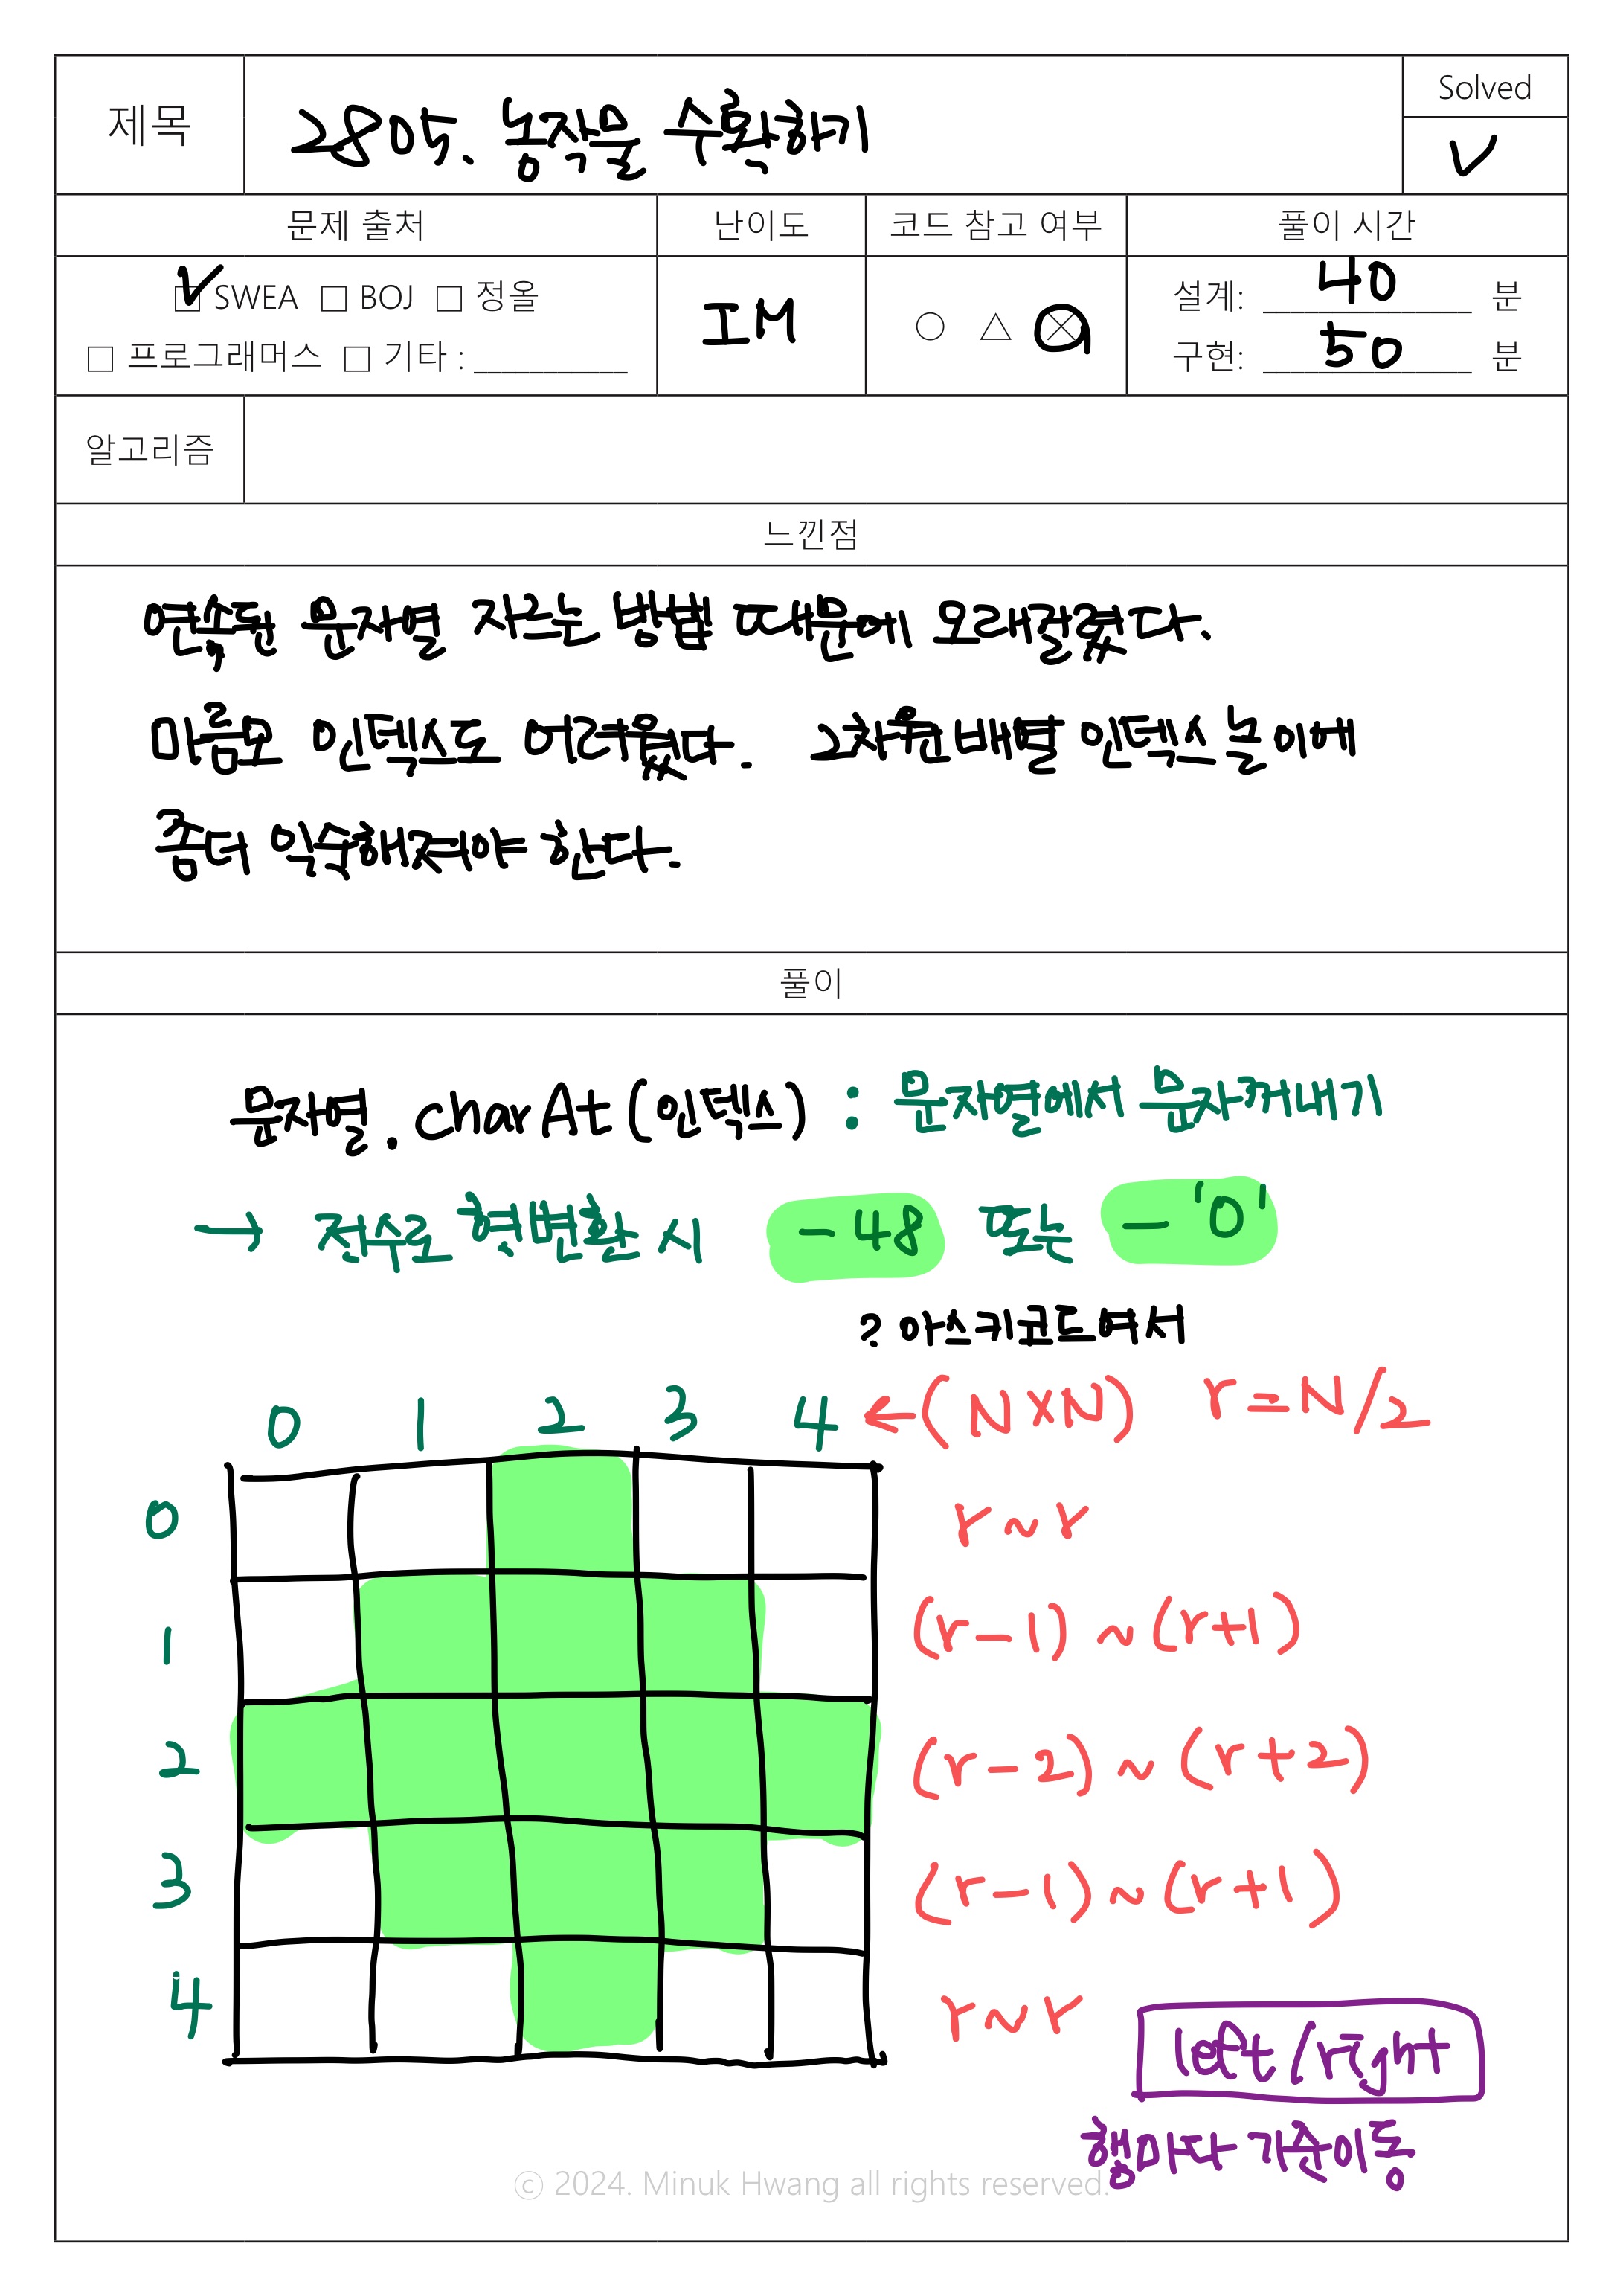 제목 2805. 농작물 수확하기 Solved
V
문제 출처 난이도 코드 참고 여부 풀이 시간
☑ SWEA □ BOJ □ 정올 IM ○ △ ⊗ 설계: 40 분
□ 프로그래머스 □ 기타 : __________ 구현: 50 분
알고리즘
느낀점
연속된 문자열 자르는 방법 때문에 오래걸렸다.
마름모 인덱스도 어려웠다. 2차원배열 인덱스 놀이에
좀더 익숙해져야 한다.
풀이
문자열.charAt(인덱스) : 문자열에서 문자꺼내기
→ 정수로 형변환 시 -48 또는 -'0'
? 아스키코드여서
0 1 2 3 4 ← (N×N) r=N/2
0 r~r
1 (r-1) ~ (r+1)
2 (r-2) ~ (r+2)
3 (r-1) ~ (r+1)
4 r~r
left/right
행마다 기준이동
© 2024. Minuk Hwang all rights reserved.